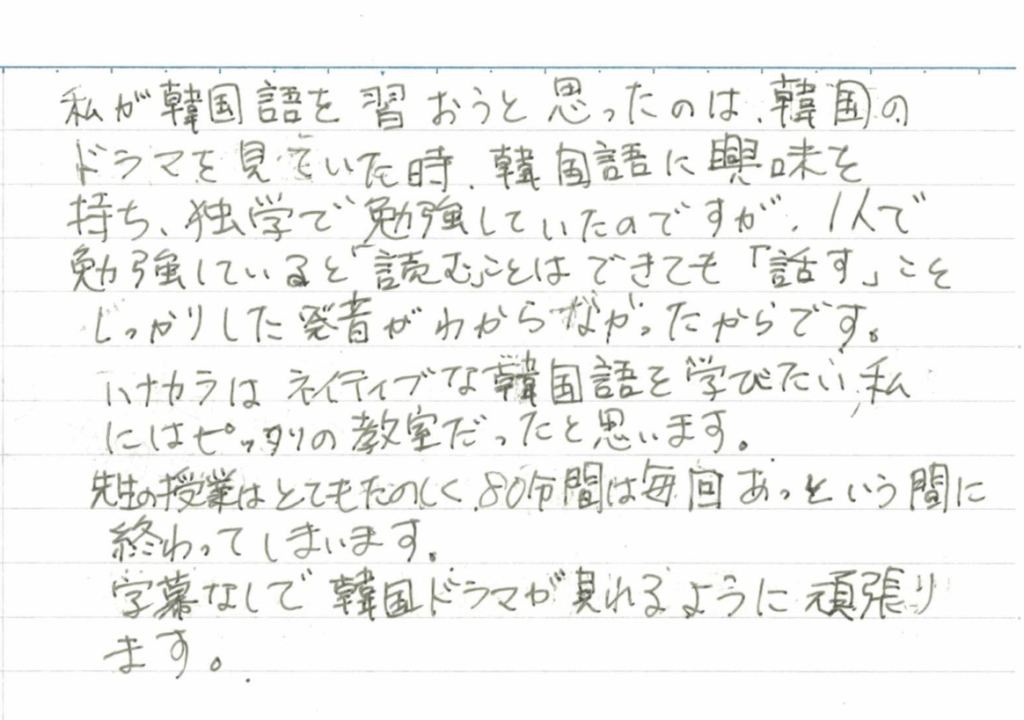 私が韓国語を習おうと思ったのは、韓国の
ドラマを見ていた時、韓国語に興味を
持ち、独学で勉強していたのですが、1人で
勉強していると「読む」ことはできても「話す」こと
しっかりした発音がわからなかったからです。
ハナカラはネイティブな韓国語を学びたい、私
にはピッタリの教室だったと思います。
先生の授業はとてもたのしく、80分間は毎回あっという間に
終わってしまいます。
字幕なしで韓国ドラマが見れるように頑張り
ます。